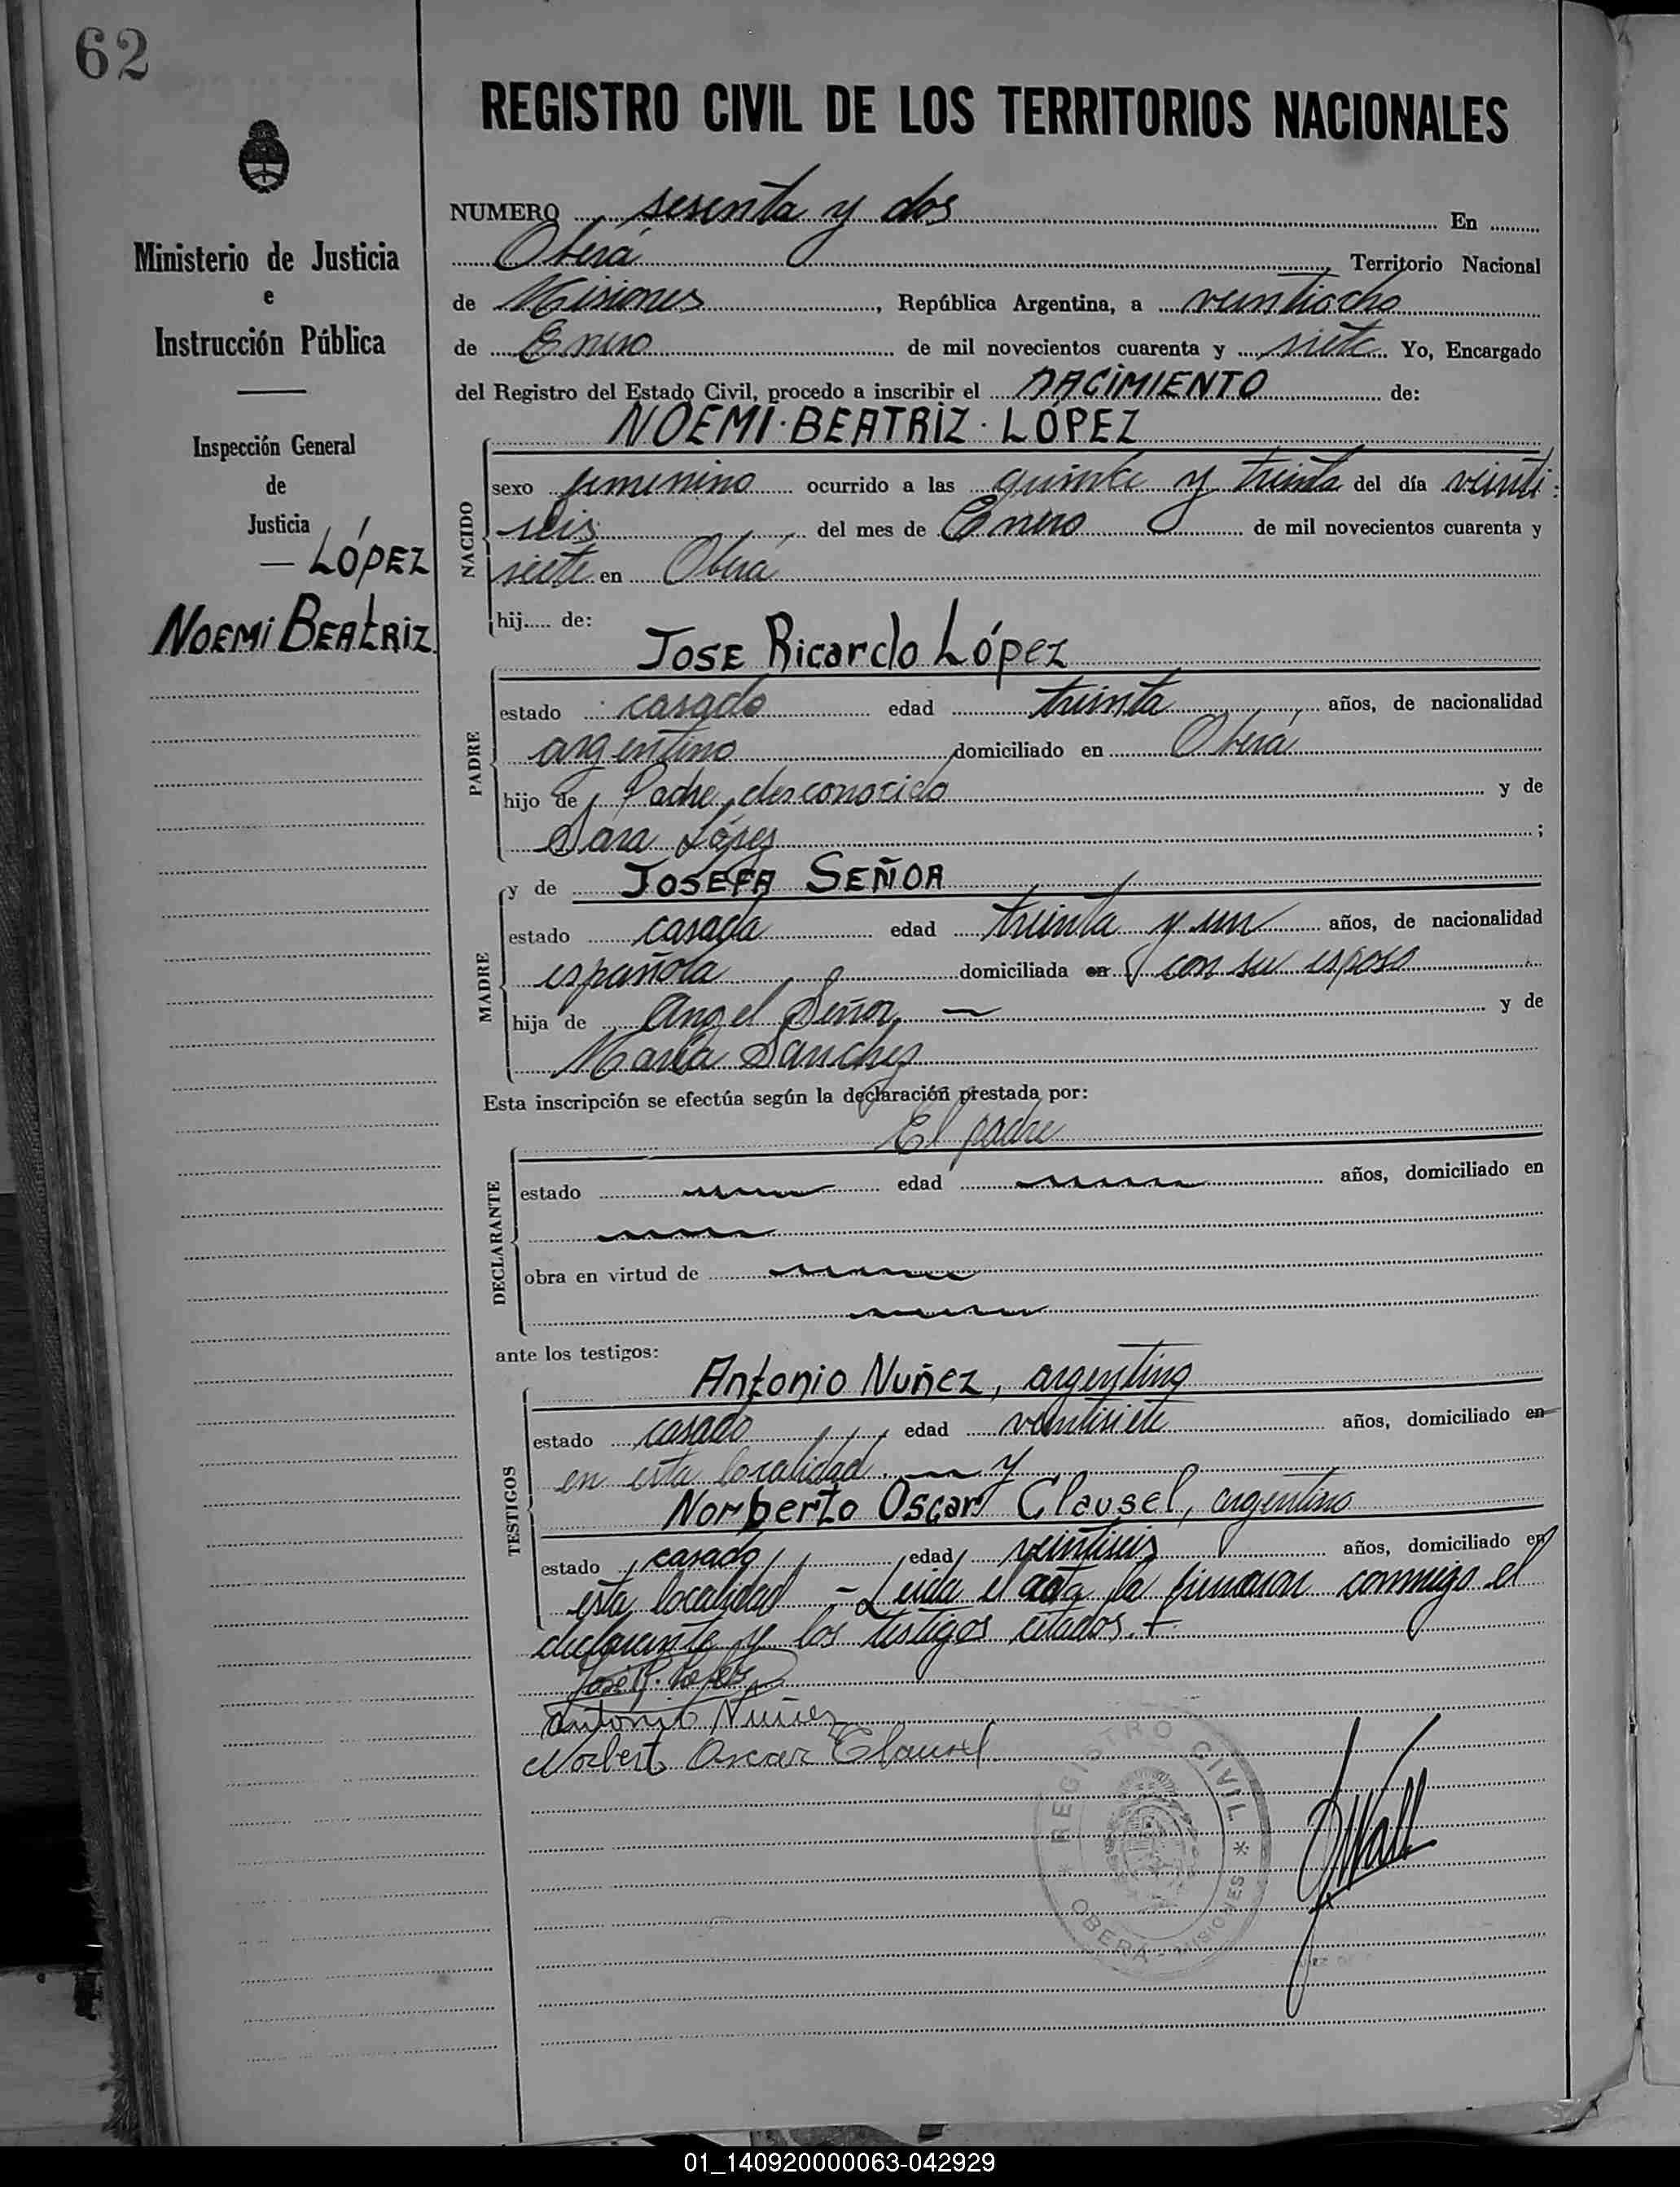 62
REGISTRO CIVIL DE LOS TERRITORIOS NACIONALES
Ministerio de Justicia
e
Instrucción Pública
Inspección General
de
Justicia
— LÓPEZ
NOEMI BEATRIZ
NUMERO sesenta y dos En
Oberá Territorio Nacional
de Misiones, República Argentina, a veintiocho
de Enero de mil novecientos cuarenta y siete Yo, Encargado
del Registro del Estado Civil, procedo a inscribir el NACIMIENTO de:
NOEMI·BEATRIZ·LÓPEZ
NACIDO
sexo femenino ocurrido a las quince y treinta del día veinti:
seis del mes de Enero de mil novecientos cuarenta y
siete en Oberá
hij..... de:
JOSE Ricardo López
PADRE
estado casado edad treinta años, de nacionalidad
argentino domiciliado en Oberá
hijo de Padre desconocido y de
Sara López ;
MADRE
y de JOSEFA SEÑOR
estado casada edad treinta y un años, de nacionalidad
española domiciliada en con su esposo
hija de Angel Señor — y de
María Sanchez
Esta inscripción se efectúa según la declaración prestada por:
El padre
DECLARANTE
estado edad años, domiciliado en
obra en virtud de
ante los testigos:
TESTIGOS
Antonio Nuñez, argentino
estado casado edad veintisiete años, domiciliado en
en esta localidad. — y
Norberto Oscar Clausel, argentino
estado casado edad veintiseis años, domiciliado en
esta localidad – Leida el acta la firmaron conmigo el
declarante y los testigos citados.
José R. Lopez
Antonio Nuñez
Norberto Oscar Clausel
* REGISTRO CIVIL *
OBERA - MISIONES
01_140920000063-042929